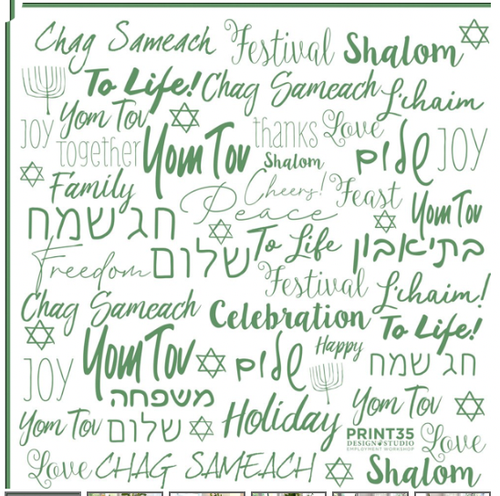 Chag Sameach Festival Shalom
To Life! Chag Sameach L'chaim
Yom Tov
JOY together Yom Tov thanks Love שלום JOY
Shalom
Family Cheers! Feast Yom Tov
Peace
חג שמח
Freedom שלום To Life בתיאבון
Festival L'chaim!
Chag Sameach Celebration To Life!
JOY Yom Tov שלום Happy חג שמח
משפחה
Yom Tov שלום Holiday Yom Tov
PRINT35
DESIGN STUDIO
EMPLOYMENT WORKSHOP
Love
Love CHAG SAMEACH Shalom